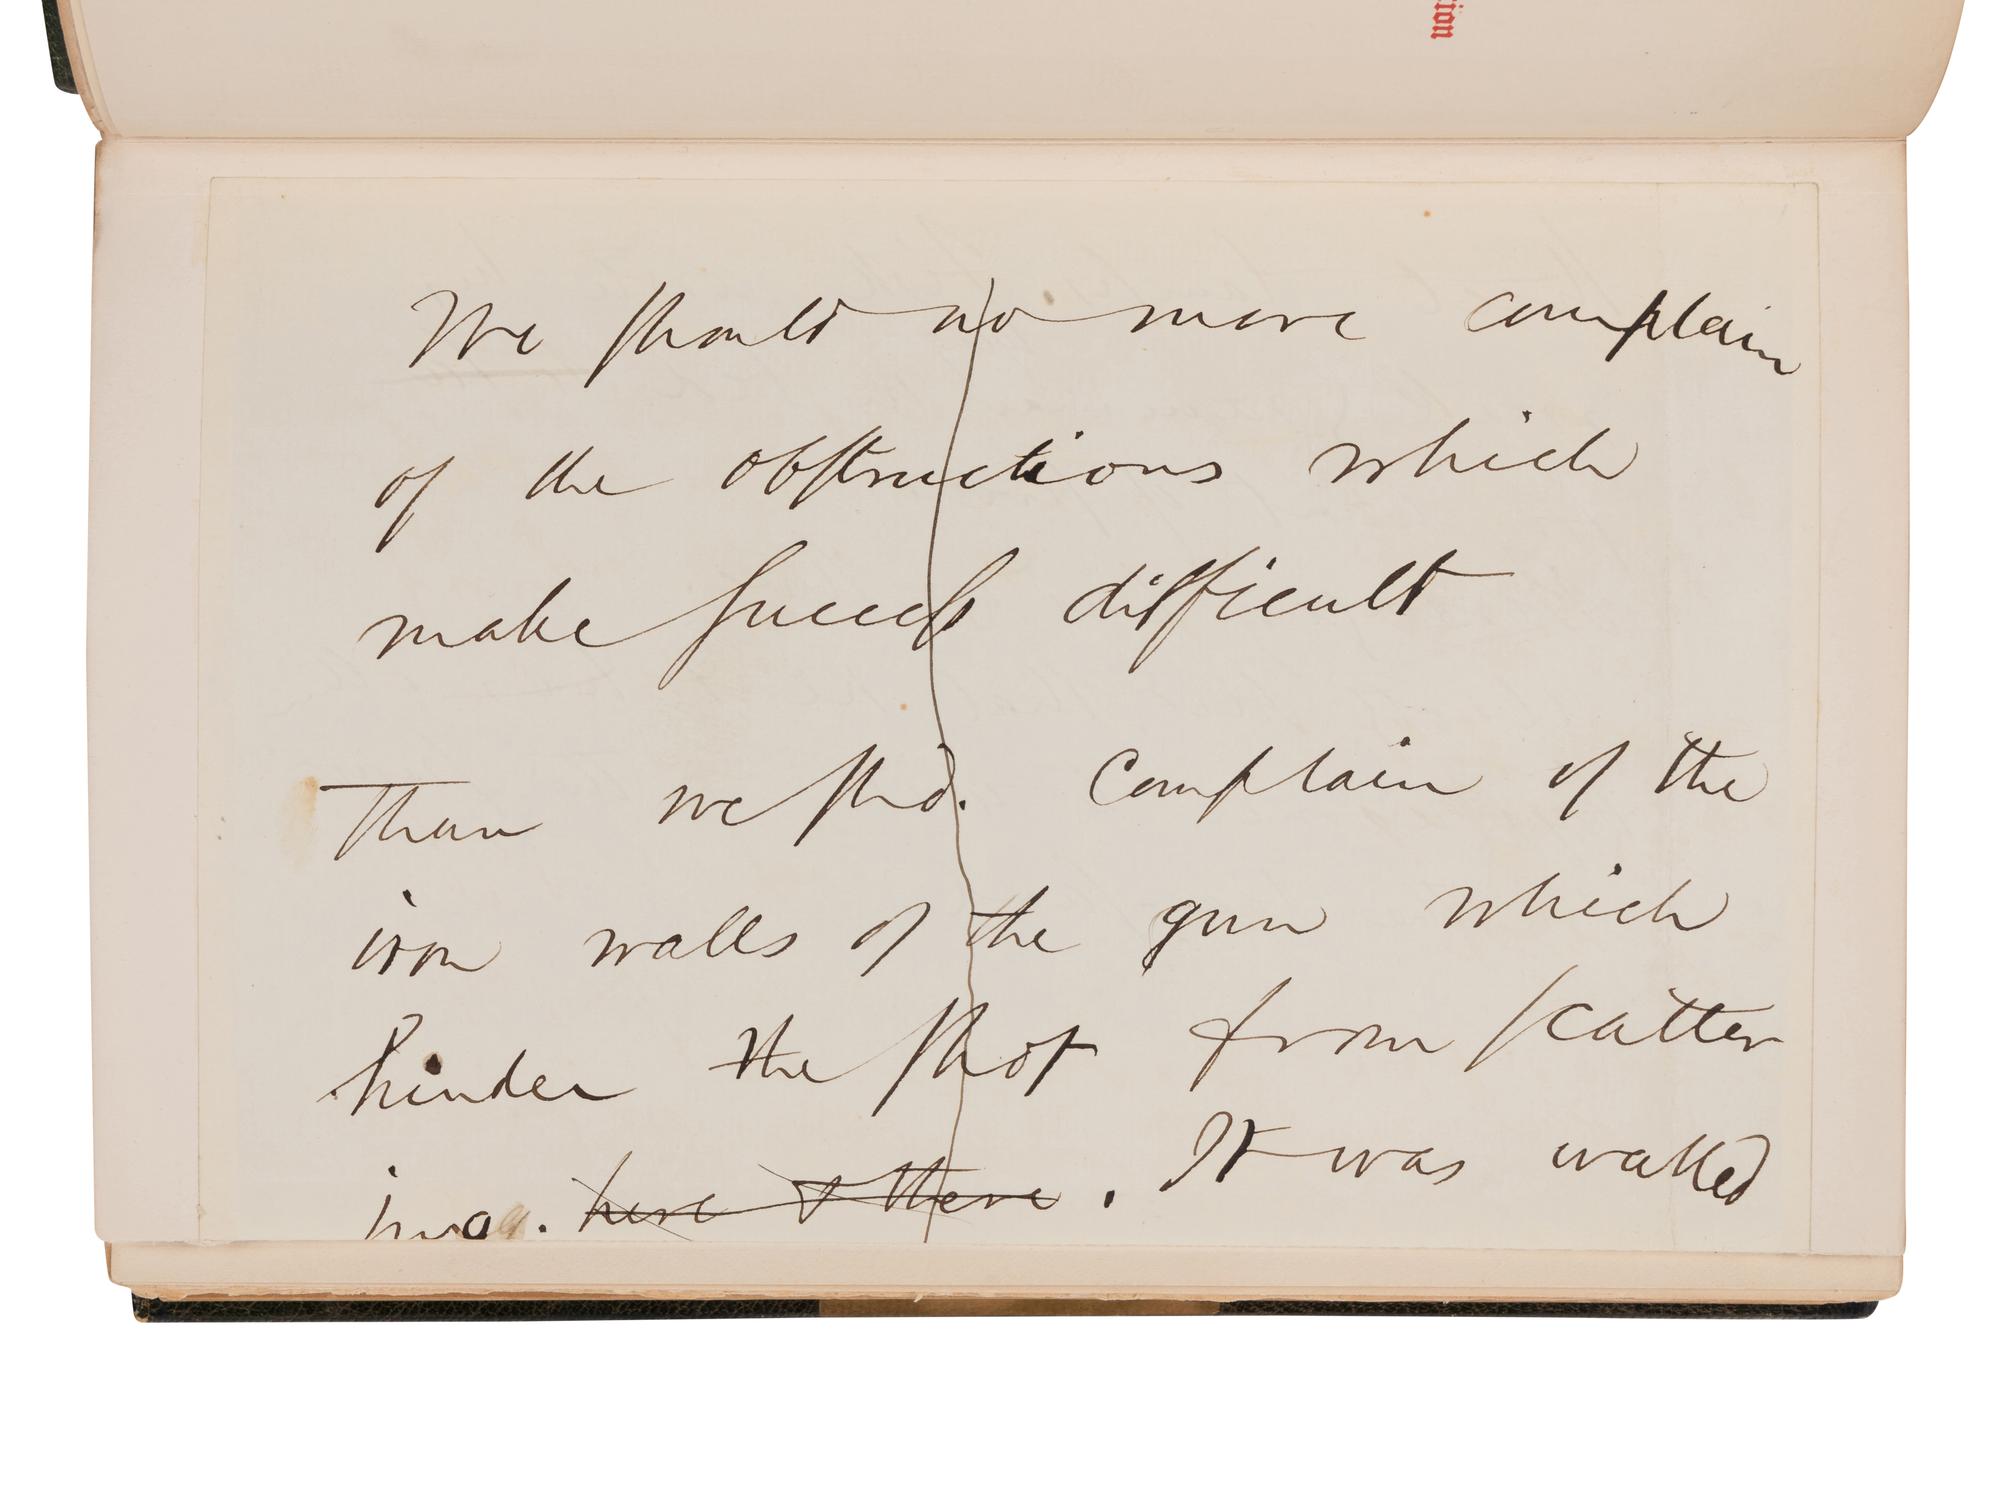 tion
We should no more complain
of the obstructions which
make success difficult
Than we shd. complain of the
iron walls of the gun which
hinder the shot from scatter
ing. here & there. It was walled